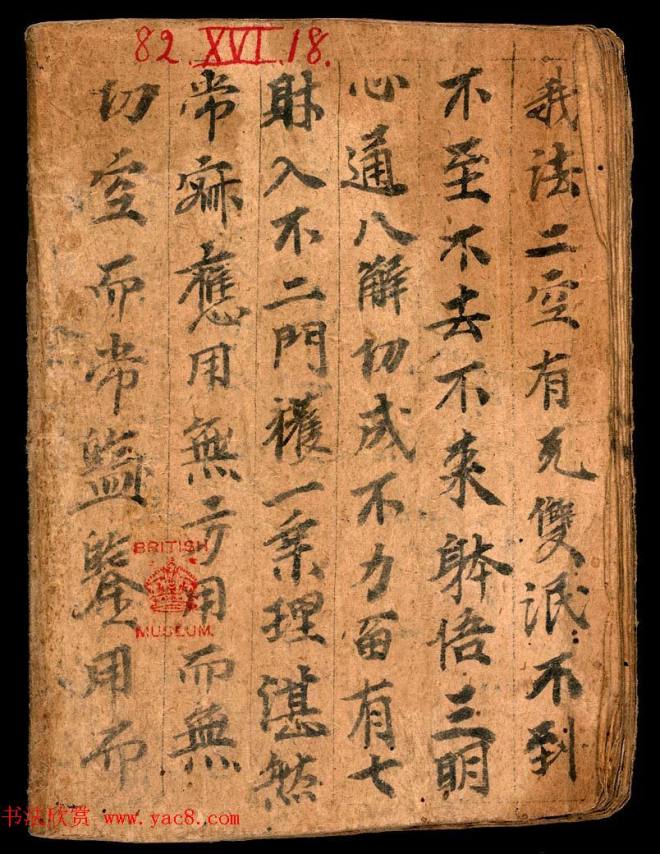 82.XVI.18.
我法二空有无雙泯不到
不至不去不来躰悟三明
心通八解切成不力畄有七
財入不二門獲一乗理湛然
常寂應用無方用而無
切空而常鍳鍳用而
BRITISH
MUSEUM.
书法欣赏 www.yac8.com